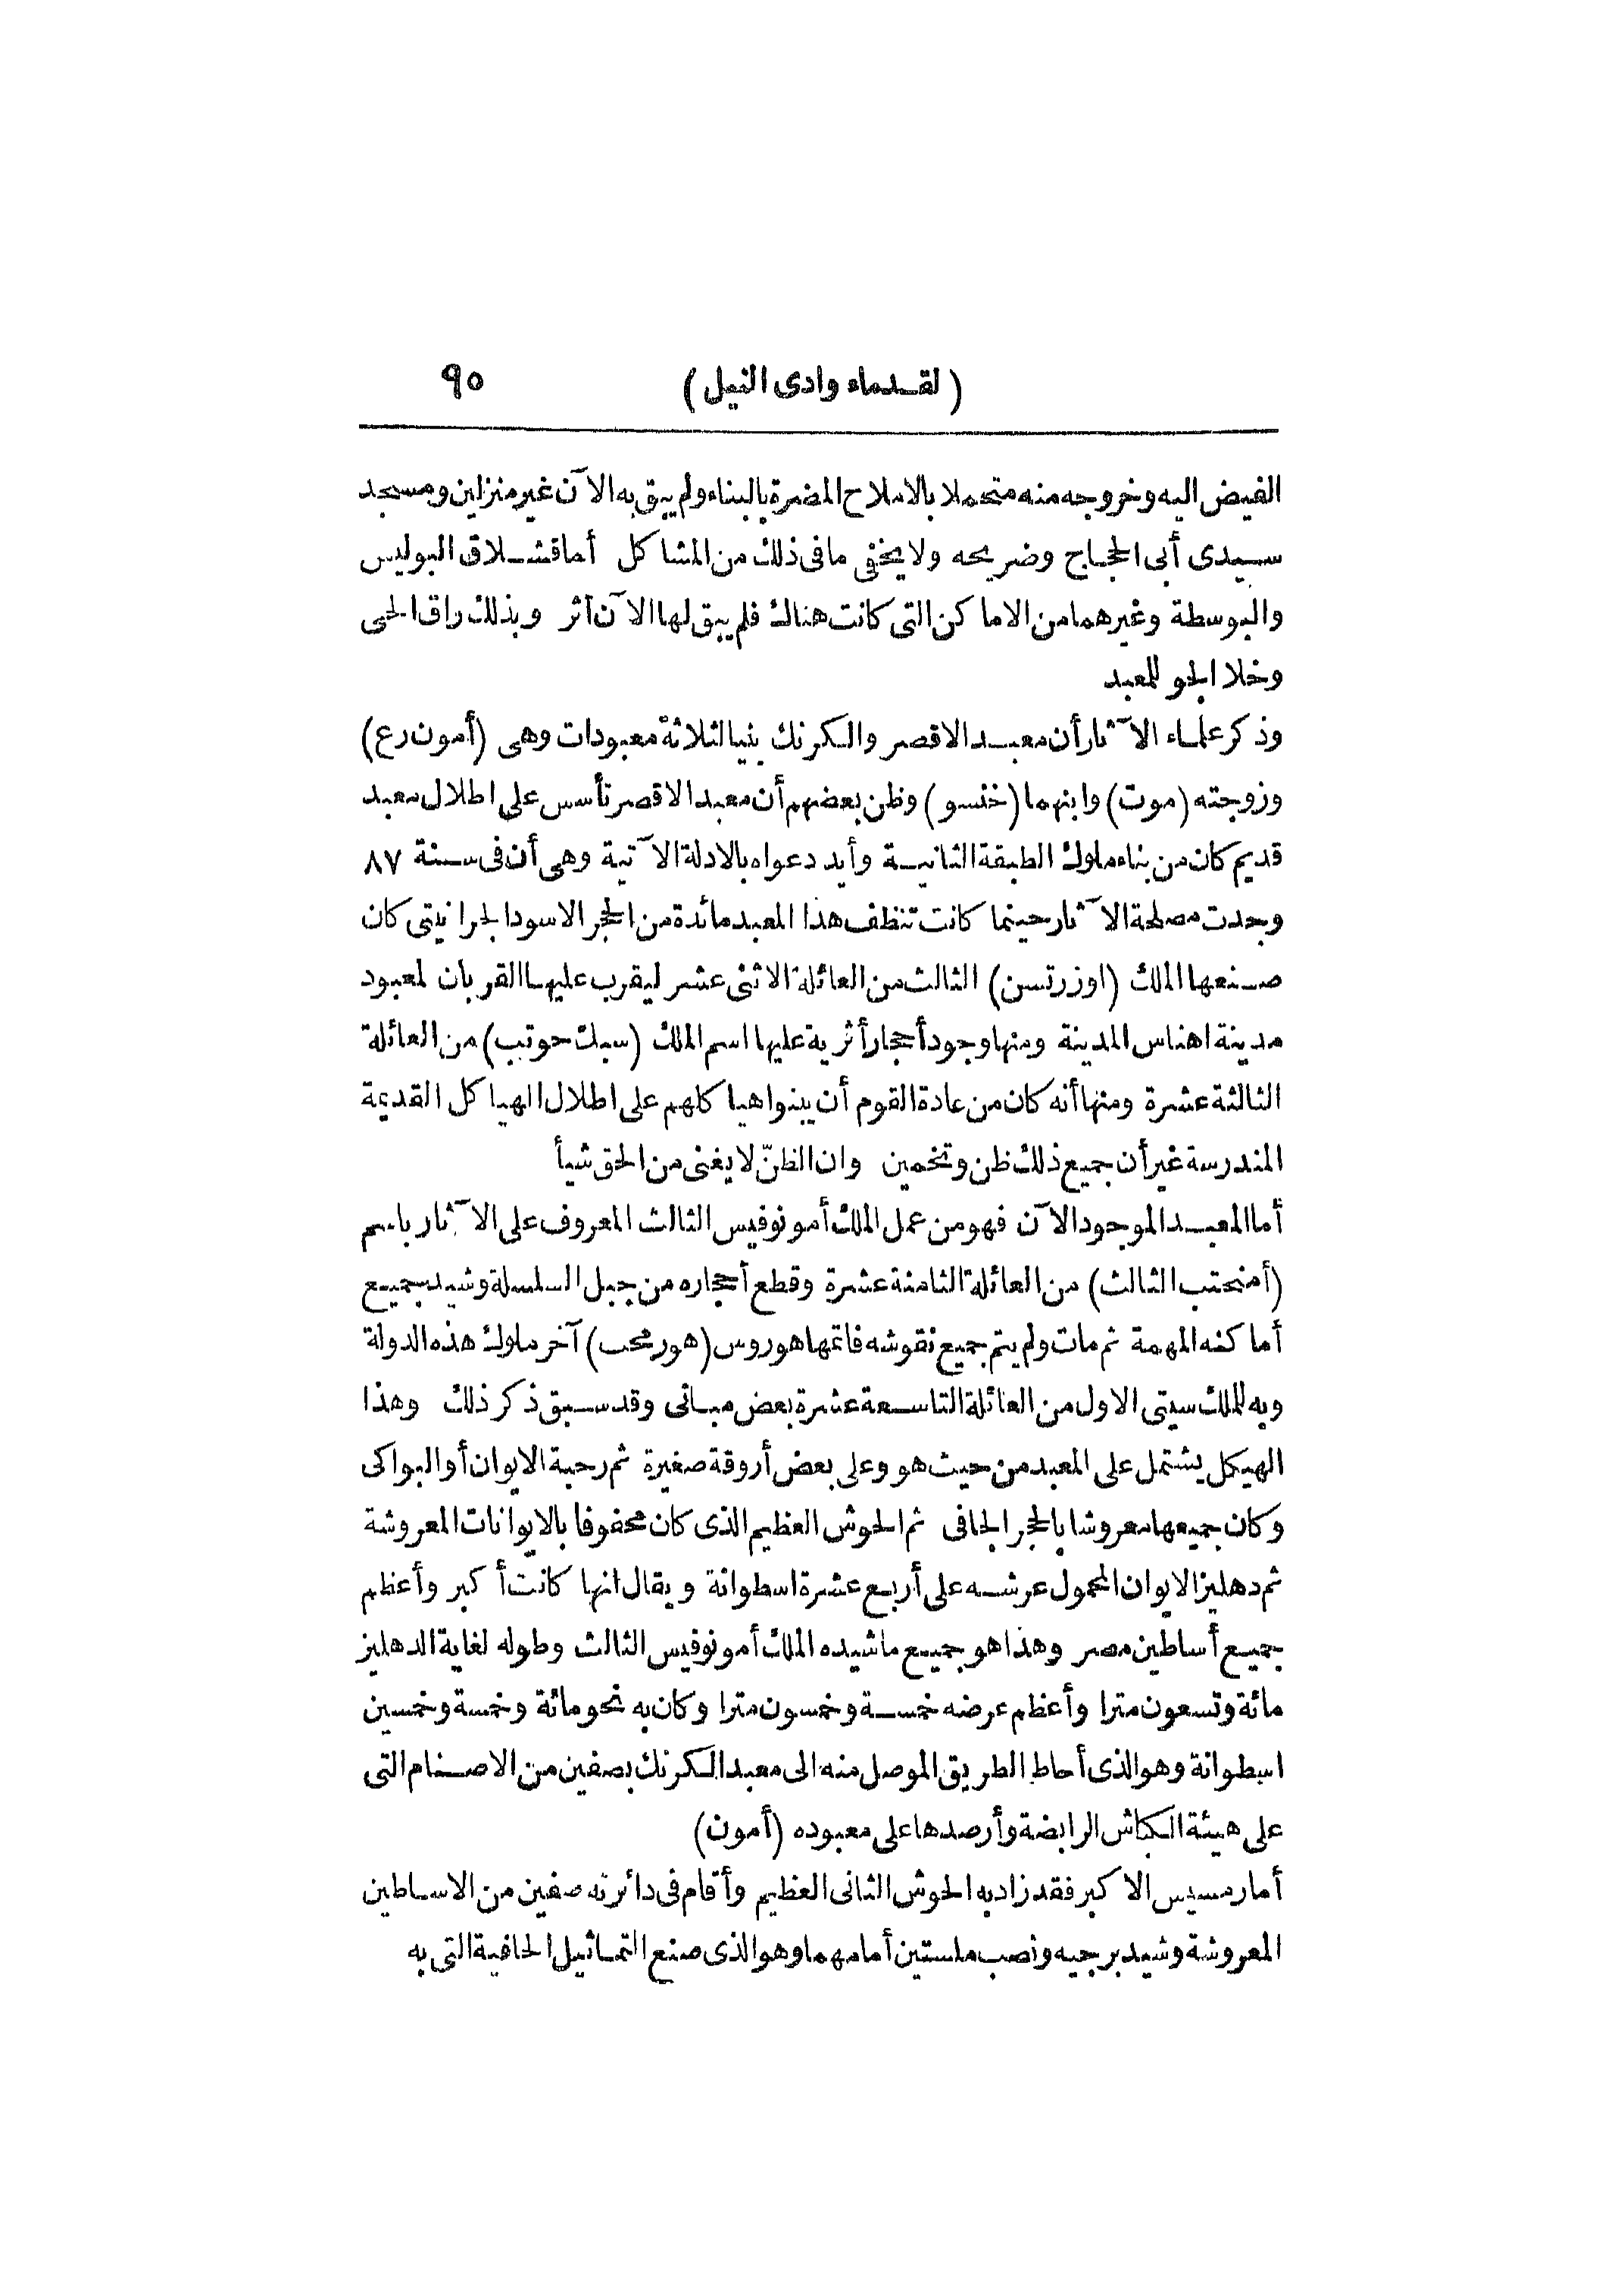 (لقدماء وادى النيل) ٩٥
الفيض اليه وخروجه منه متحملا بالاملاح المضرة بالبناء ولم يبق به الآن غير منزلين ومسجد
سيدى أبى الحجاج وضريحه ولا يخفى ما فى ذلك من المشاكل أما قشلاق البوليس
والبوسطة وغيرهما من الاماكن التى كانت هناك فلم يبق لها الآن أثر وبذلك راق الحى
وخلا الجو للمعبد
وذكر علماء الآثار أن معبد الاقصر والكرنك بنيا لثلاثة معبودات وهى (أمون رع)
وزوجته (موت) وابنهما (خنسو) وظن بعضهم أن معبد الاقصر تأسس على اطلال معبد
قديم كان من بناء ملوك الطبقة الثانية وأيد دعواه بالادلة الآتية وهى أن فى سنة ٨٧
وجدت مصلحة الآثار حينما كانت تنظف هذا المعبد مائدة من الحجر الاسود الجرانيتى كان
صنعها الملك (اوزرتسن) الثالث من العائلة الاثنى عشر ليقرب عليها القربان لمعبود
مدينة اهناس المدينة ومنها وجود أحجار أثرية عليها اسم الملك (سبك حوتب) من العائلة
الثالثة عشرة ومنها أنه كان من عادة القوم أن يبنوا هياكلهم على اطلال الهياكل القديمة
المندرسة غير أن جميع ذلك ظن وتخمين وان الظنّ لا يغنى من الحق شيأ
أما المعبد الموجود الآن فهو من عمل الملك أمونوفيس الثالث المعروف على الآثار باسم
(أمنحتب الثالث) من العائلة الثامنة عشرة وقطع أحجاره من جبل السلسلة وشيد جميع
أماكنه المهمة ثم مات ولم يتم جميع نقوشه فاتمها هوروس (هور محب) آخر ملوك هذه الدولة
وبه للملك سيتى الاول من العائلة التاسعة عشرة بعض مبانى وقد سبق ذكر ذلك وهذا
الهيكل يشتمل على المعبد من حيث هو وعلى بعض أروقة صغيرة ثم رحبة الايوان أو البواكى
وكان جميعها معروشا بالحجر الجافى ثم الحوش العظيم الذى كان محفوفا بالايوانات المعروشة
ثم دهليز الايوان المحمول عرشه على أربع عشرة اسطوانة ويقال انها كانت أكبر وأعظم
جميع أساطين مصر وهذا هو جميع ما شيده الملك أمونوفيس الثالث وطوله لغاية الدهليز
مائة وتسعون مترا وأعظم عرضه خمسة وخمسون مترا وكان به نحو مائة وخمسة وخمسين
اسطوانة وهو الذى أحاط الطريق الموصل منه الى معبد الكرنك بصفين من الاصنام التى
على هيئة الكباش الرابضة وأرصدها على معبوده (أمون)
أما رمسيس الاكبر فقد زاد به الحوش الثانى العظيم وأقام فى دائرته صفين من الاساطين
المعروشة وشيد برجيه ونصب ملستين أمامهما وهو الذى صنع التماثيل الجافية التى به